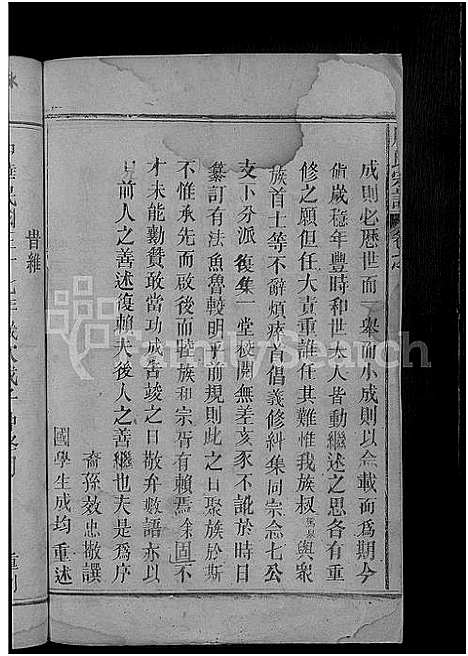 成則必歷世而一舉而小成則以叁載而爲期今
歲稔年豐時和世太人皆動繼述之思各有重
修之願但任大責重誰任其難惟我族叔與衆
族首士等不辭煩瘁首倡義修糾集同宗念七公
支下分派復集一堂校閱無差亥豕不訛於時日
纂訂有法魚魯較明乎前規則此之日聚族於斯
不惟承先而啟後而睦族和宗胥有賴焉余固不
才未能勷贊敢當功成告竣之日敬弁數語亦以
見前人之善述復賴夫後人之善繼也夫是爲序
裔孫效忠撤譔
國學生成均重述
昔雜
FamilySearch